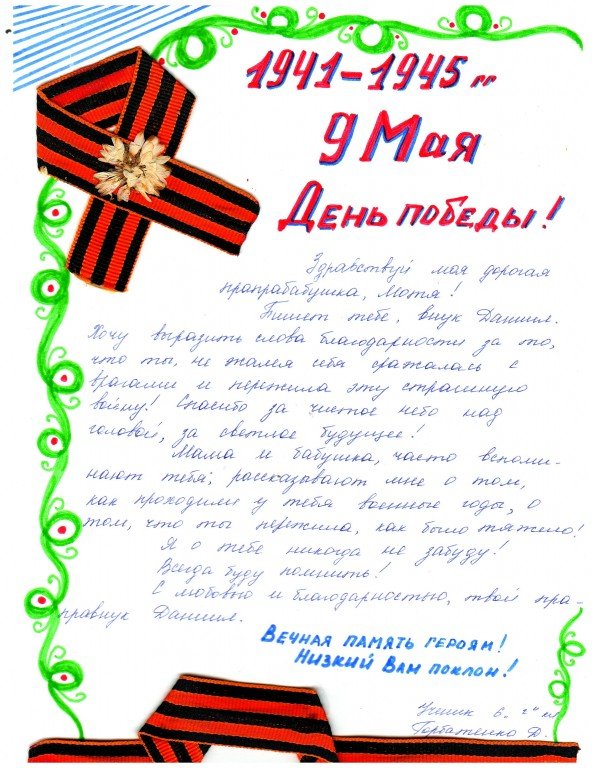 1941-1945 гг
9 Мая
День победы!
Здравствуй моя дорогая
прапрабабушка, Мотя!
Пишет тебе, внук Даниил.
Хочу выразить слова благодарности за то,
что ты, не жалея себя сражалась с
врагами и пережила эту страшную
войну! Спасибо за чистое небо над
головой, за светлое будущее!
Мама и бабушка, часто вспоми-
нают тебя; рассказывают мне о том,
как проходили у тебя военные годы, о
том, что ты пережила, как было тяжело!
Я о тебе никогда не забуду!
Всегда буду помнить!
С любовью и благодарностью, твой пра-
правнук Даниил.
Вечная память героям!
Низкий Вам поклон!
Ученик 6 „г" кл
Горбатенко Д.